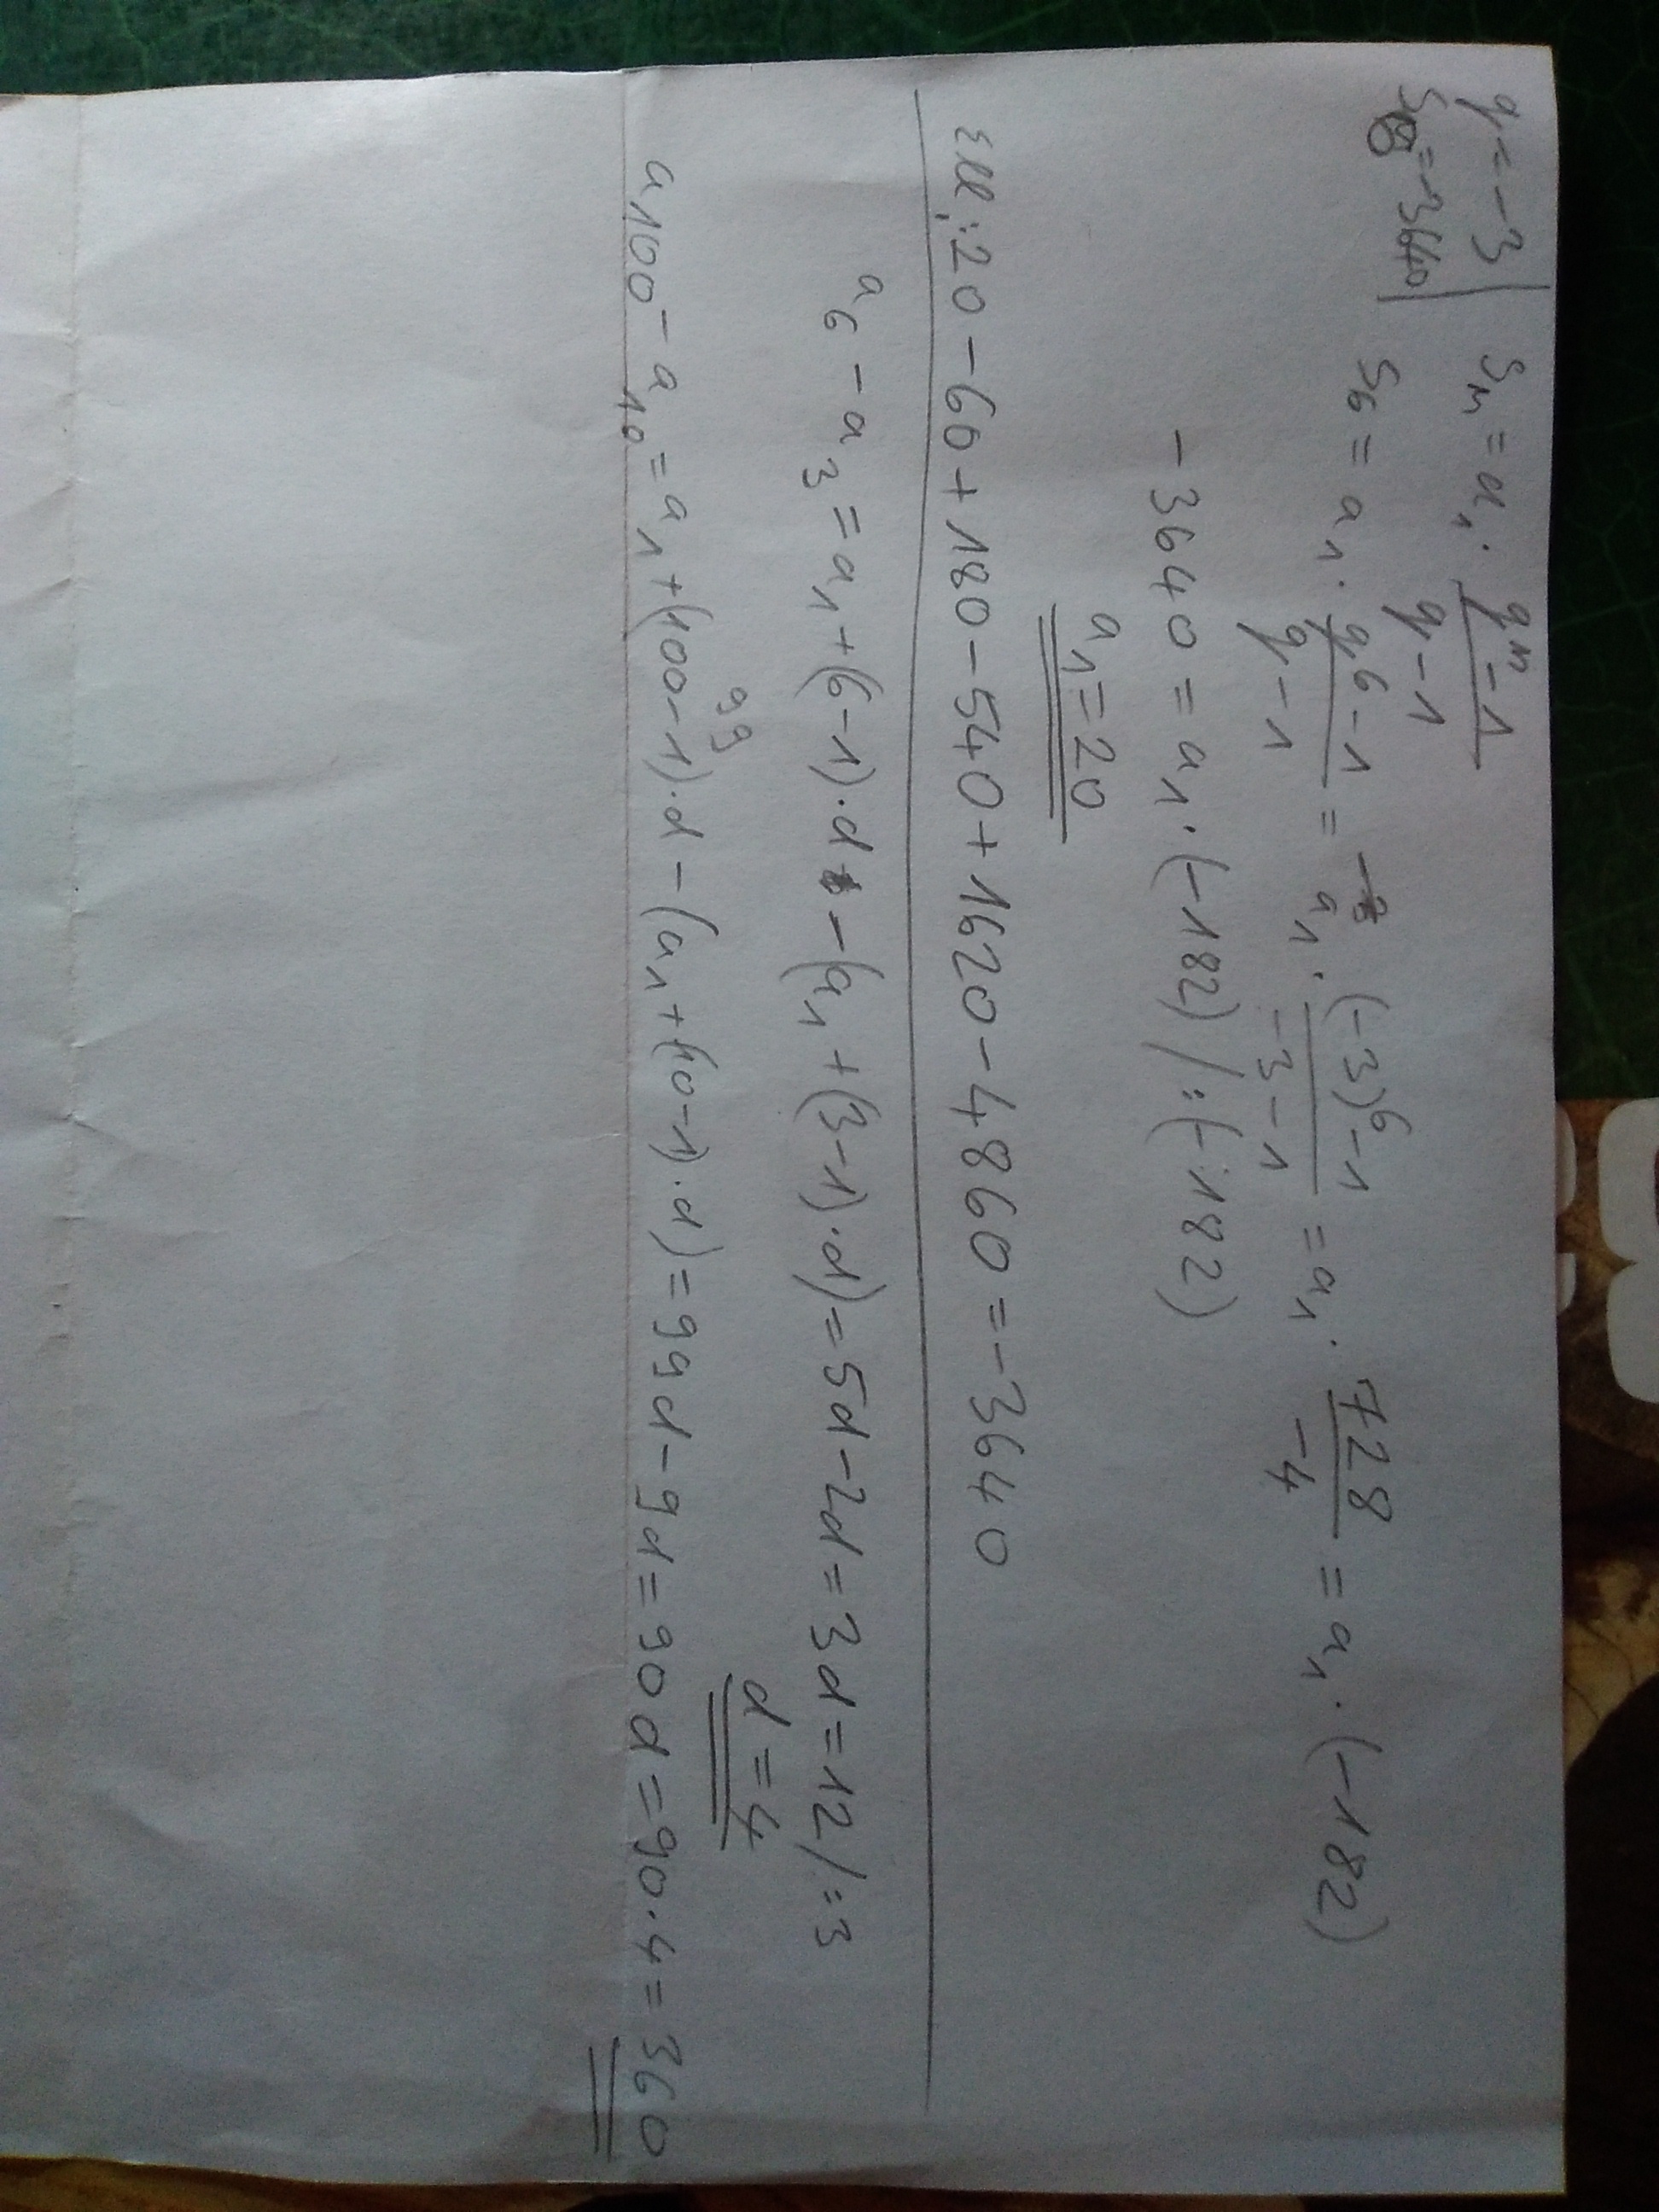 q = -3 | Sn = a1 · (q^n - 1)/(q - 1)
S6 = -3640 | S6 = a1 · (q^6 - 1)/(q - 1) = a1 · ((-3)^6 - 1)/(-3 - 1) = a1 · 728/-4 = a1 · (-182)
-3640 = a1 · (-182) / : (-182)
a1 = 20
Ell.: 20 - 60 + 180 - 540 + 1620 - 4860 = -3640
a6 - a3 = a1 + (6-1) · d - (a1 + (3-1) · d) = 5d - 2d = 3d = 12 / : 3
d = 4
99
a100 - a10 = a1 + (100-1) · d - (a1 + (10-1) · d) = 99d - 9d = 90d = 90 · 4 = 360